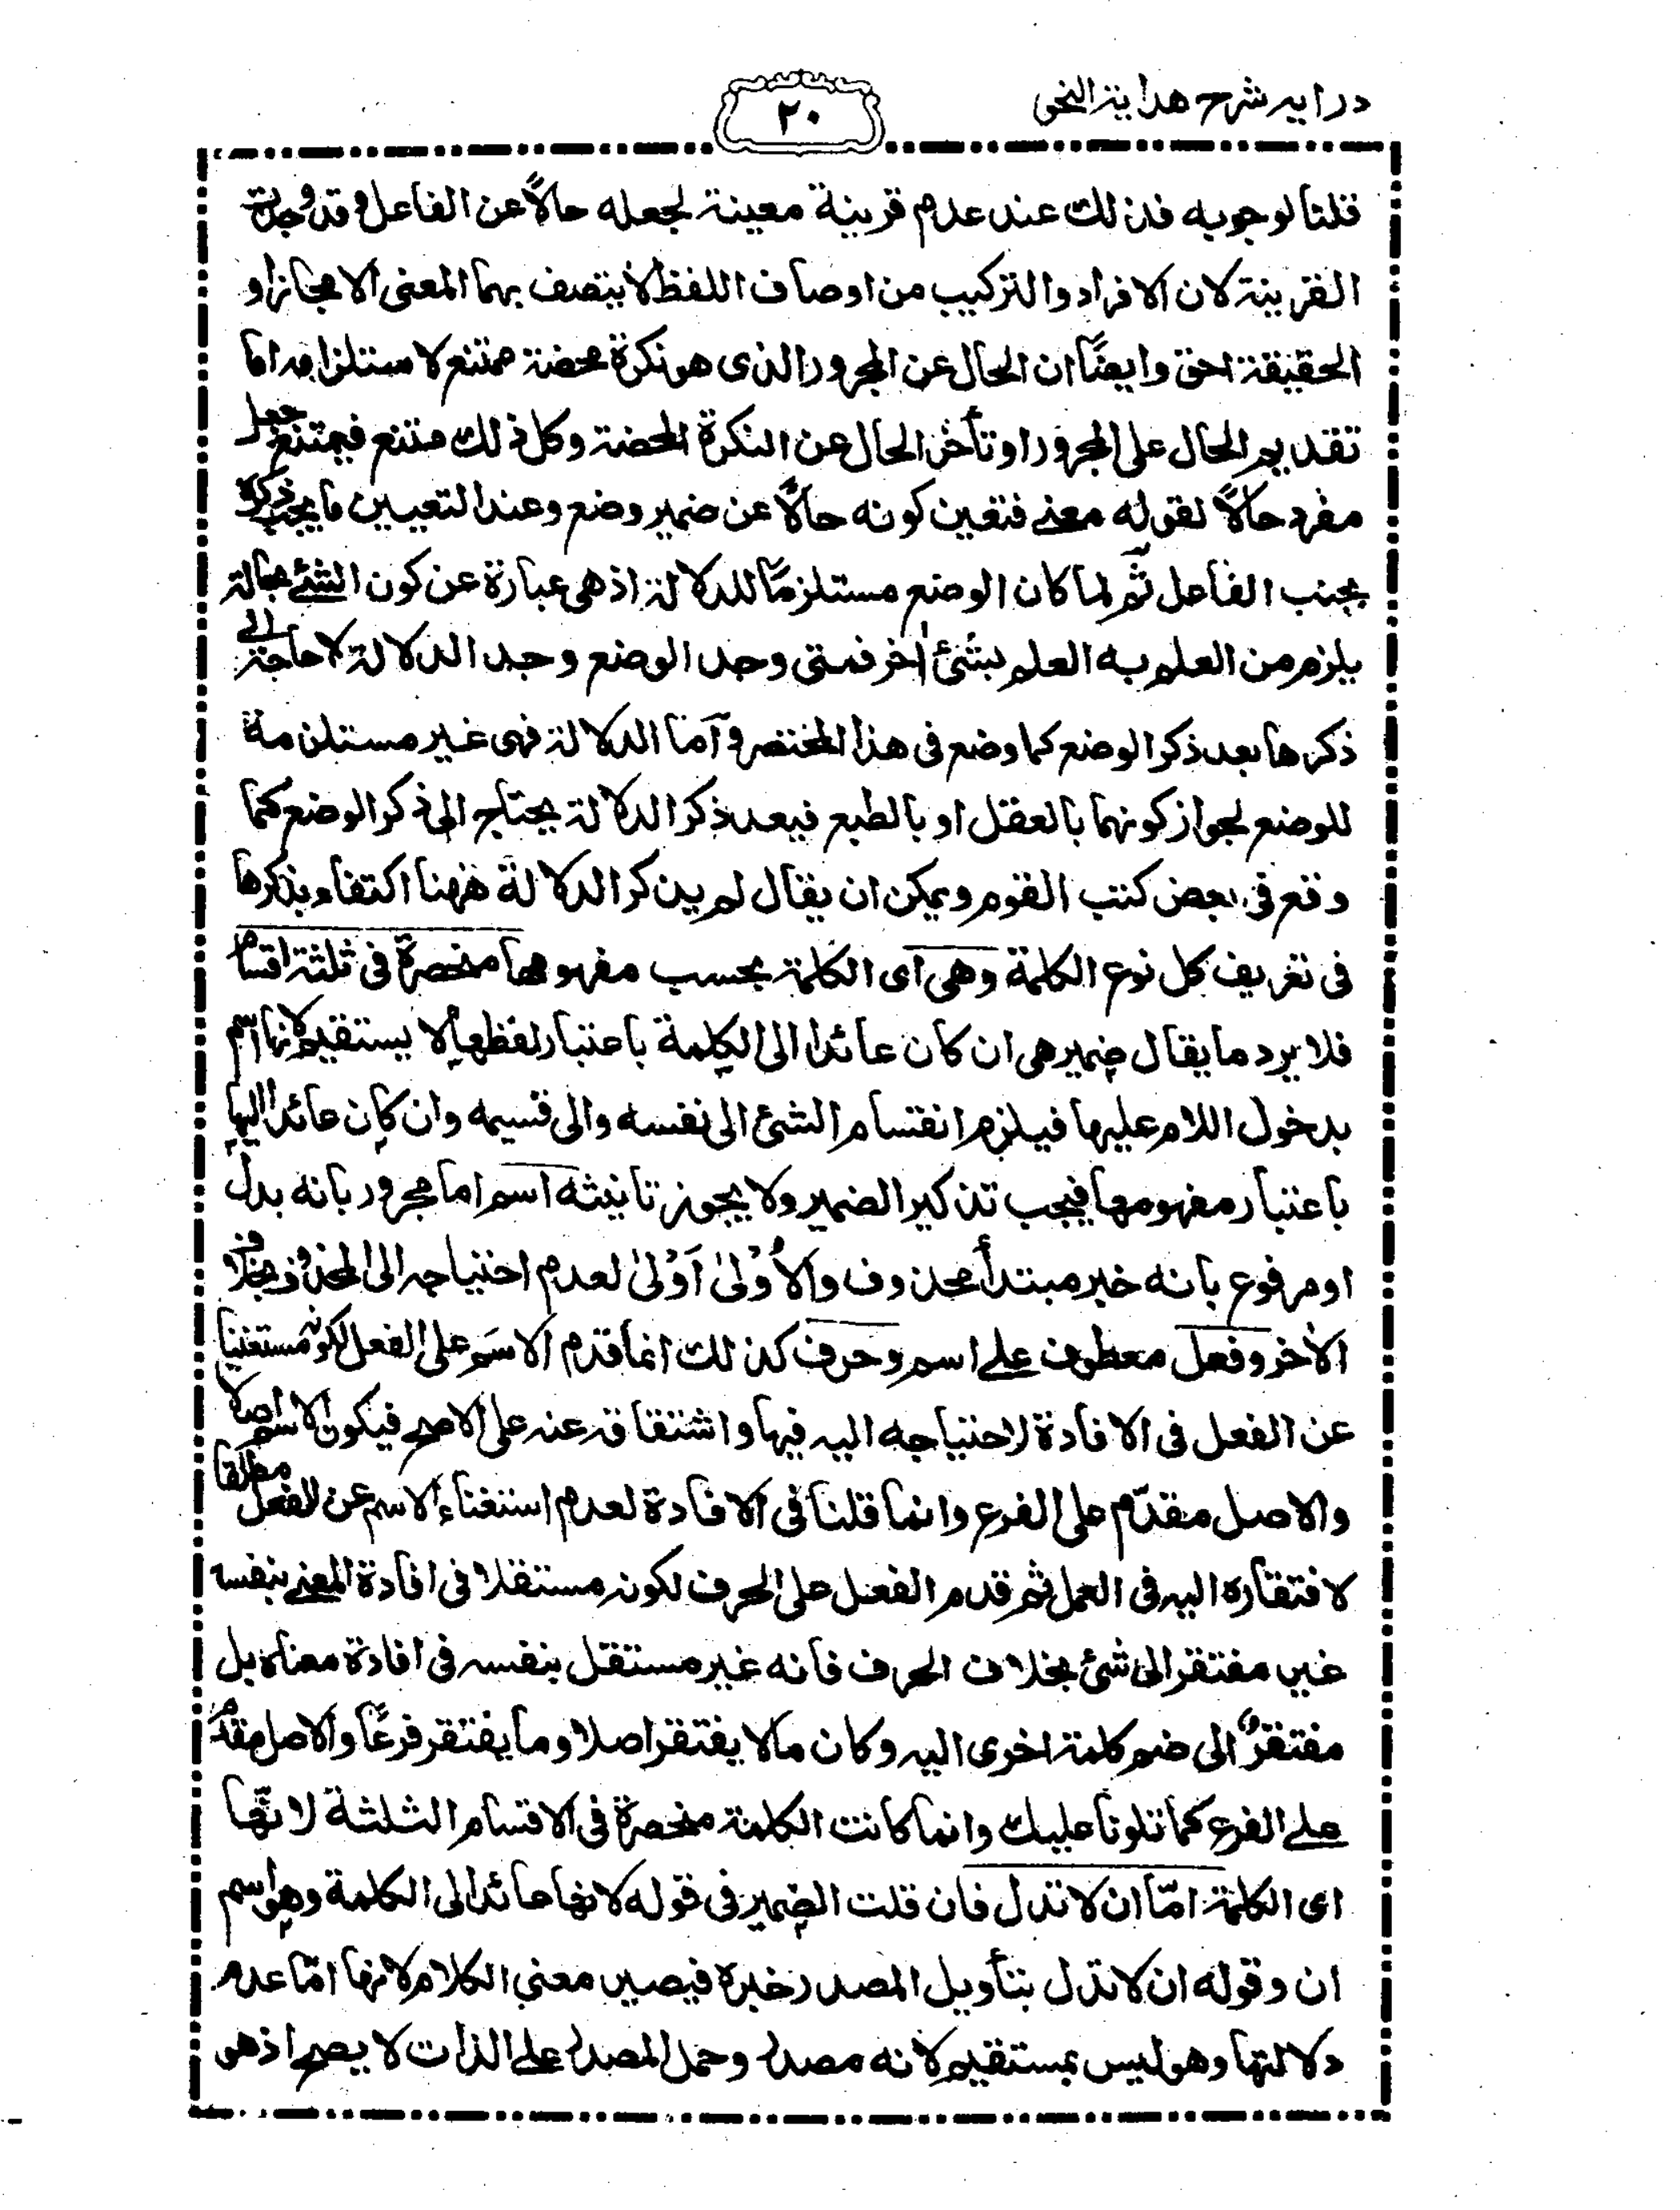 درايه شرح هداية النحو
٢٠
قلنا لوجوبه فذلك عند عدم قرينة معينة لجعله حالًا عن الفاعل وقد وجدت
القرينة لان الافراد والتركيب من اوصاف اللفظ لا يتصف بهما المعنى الا مجازا و
الحقيقة احق وايضًا ان الحال عن المجرور الذى هو نكرة محضة ممتنع لاستلزامه اما
تقديم الحال على المجرور او تأخر الحال عن النكرة المحضة وكل ذلك ممتنع فيمتنع جعل
مفرد حالًا لقوله معنے فتعين كونه حالًا عن ضمير وضع وعند التعيين ما يجب ذكره
بجنب الفاعل ثم لما كان الوضع مستلزمًا للدلالة اذ هى عبارة عن كون الشئے بحالة
يلزم من العلم به العلم بشئ اٰخر فمتى وجد الوضع وجد الدلالة لا حاجة الى
ذكرها بعد ذكر الوضع كما وضع فى هذا المختصر وأما الدلالة فهى غير مستلزمة
للوضع لجواز كونها بالعقل او بالطبع فبعد ذكر الدلالة يحتاج الى ذكر الوضع كما
وقع فى بعض كتب القوم ويمكن ان يقال لم يذكر الدلالة ههنا اكتفاء بذكرها
فى تعريف كل نوع الكلمة وهى اى الكلمة بحسب مفهومها منحصرة فى ثلثة اقسام
فلا يرد ما يقال ضمير هى ان كان عائدا الى الكلمة باعتبار لفظها لا يستقيم لانها اسم
بدخول اللام عليها فيلزم انقسام الشئ الى نفسه والى قسيمه وان كان عائدا اليها
باعتبار مفهومها فيجب تذكير الضمير ولا يجوز تانيثه اسم اما مجرور بانه بدل
او مرفوع بانه خبر مبتدأ محذوف والأُولىٰ اَوْلىٰ لعدم احتياجه الى المحذوف بخلاف
الاٰخر وفعل معطوف علے اسم وحرف كذلك انما قدم الاسم على الفعل لكونه مستغنيا
عن الفعل فى الافادة لاحتياجه اليه فيها واشتقاقه عنه على الاصح فيكون الاسم اصلا
والاصل مقدّم على الفرع وانما قلنا فى الافادة لعدم استغناء الاسم عن الفعل مطلقا
لافتقاره اليه فى العمل ثم قدم الفعل على الحرف لكونه مستقلا فى افادة المعنے بنفسه
غير مفتقر الى شئ بخلاف الحرف فانه غير مستقل بنفسه فى افادة معناه بل
مفتقرٌ الى ضم كلمة اخرى اليه وكان ما لا يفتقر اصلا وما يفتقر فرعًا والاصل مقدم
علے الفرع كما تلونا عليك وانما كانت الكلمة منحصرة فى الاقسام الثلثة لانّها
اى الكلمة امّا ان لا تدل فان قلت الضمير فى قوله لانها عائد الى الكلمة وهو اسم
ان وقوله ان لا تدل بتأويل المصدر خبره فيصير معنى الكلام لانها امّا عدم
دلالتها وهو ليس بمستقيم لانه مصدر وحمل المصدر علے الذات لا يصح اذ هو